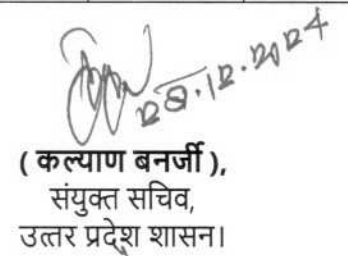 12.2024
( कल्याण बनर्जी ),
संयुक्त सचिव,
उत्तर प्रदेश शासन।